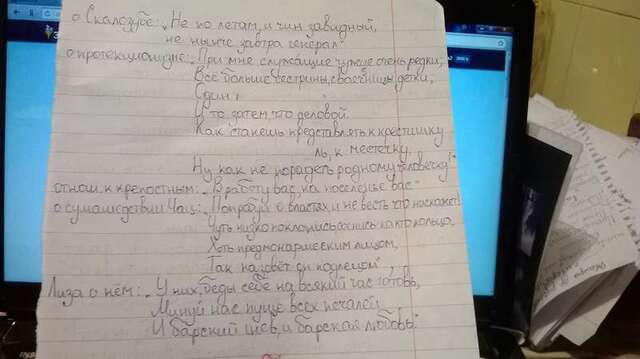 о Скалозубе: „Не по летам, и чин завидный,
не нынче завтра генерал"
о протекционизме: „При мне служащие чужие очень редки;
Всё больше сестрины, своячницы детки;
Один
И то затем что деловой.
Как станешь представлять к крестишку
ль, к местечку,
Ну как не порадеть родному человечку!"
отнош. к крепостным: „В работу вас, на поселенье вас"
о сумашедствии Чац.: „Попробуй о властях, и не весть что наскажет!
Чуть низко поклонись, согнись ка кто кольцо,
Хоть пред монаршеским лицом,
Так назовёт он подлецом",
Лиза о нём: „У них беды себе на всякий час готовь,
Минуй нас пуще всех печалей
И барский гнев, и барская любовь"